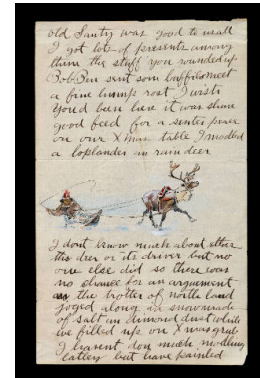 old Santy was good to us all
I got lots of presents among
them the stuff you rounded up.
Bob Ben sent som buffilo meet
a fine hump rost I wish
youd been here it was shure
good feed for a senter
on our X mas table I modled
a loplander an rain deer
I dont know much about ether
the deer or its driver but no
one else did so there was
no chance for an arguement
as the trotter of north land
joged along in snow made
of salt an dimond dust while
we filled up on X mas grub
I havent don much modling
latley but have painted